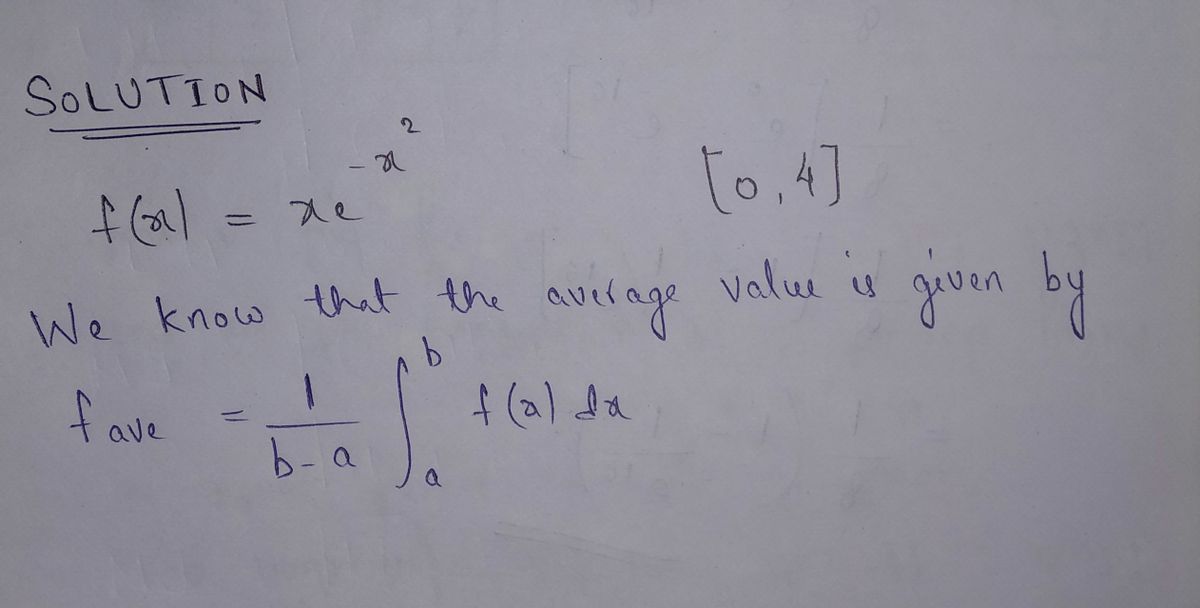 SOLUTION
f(x) = xe^{-x^2} [0,4]
We know that the average value is given by
f ave = \frac{1}{b-a} \int_a^b f(x) dx